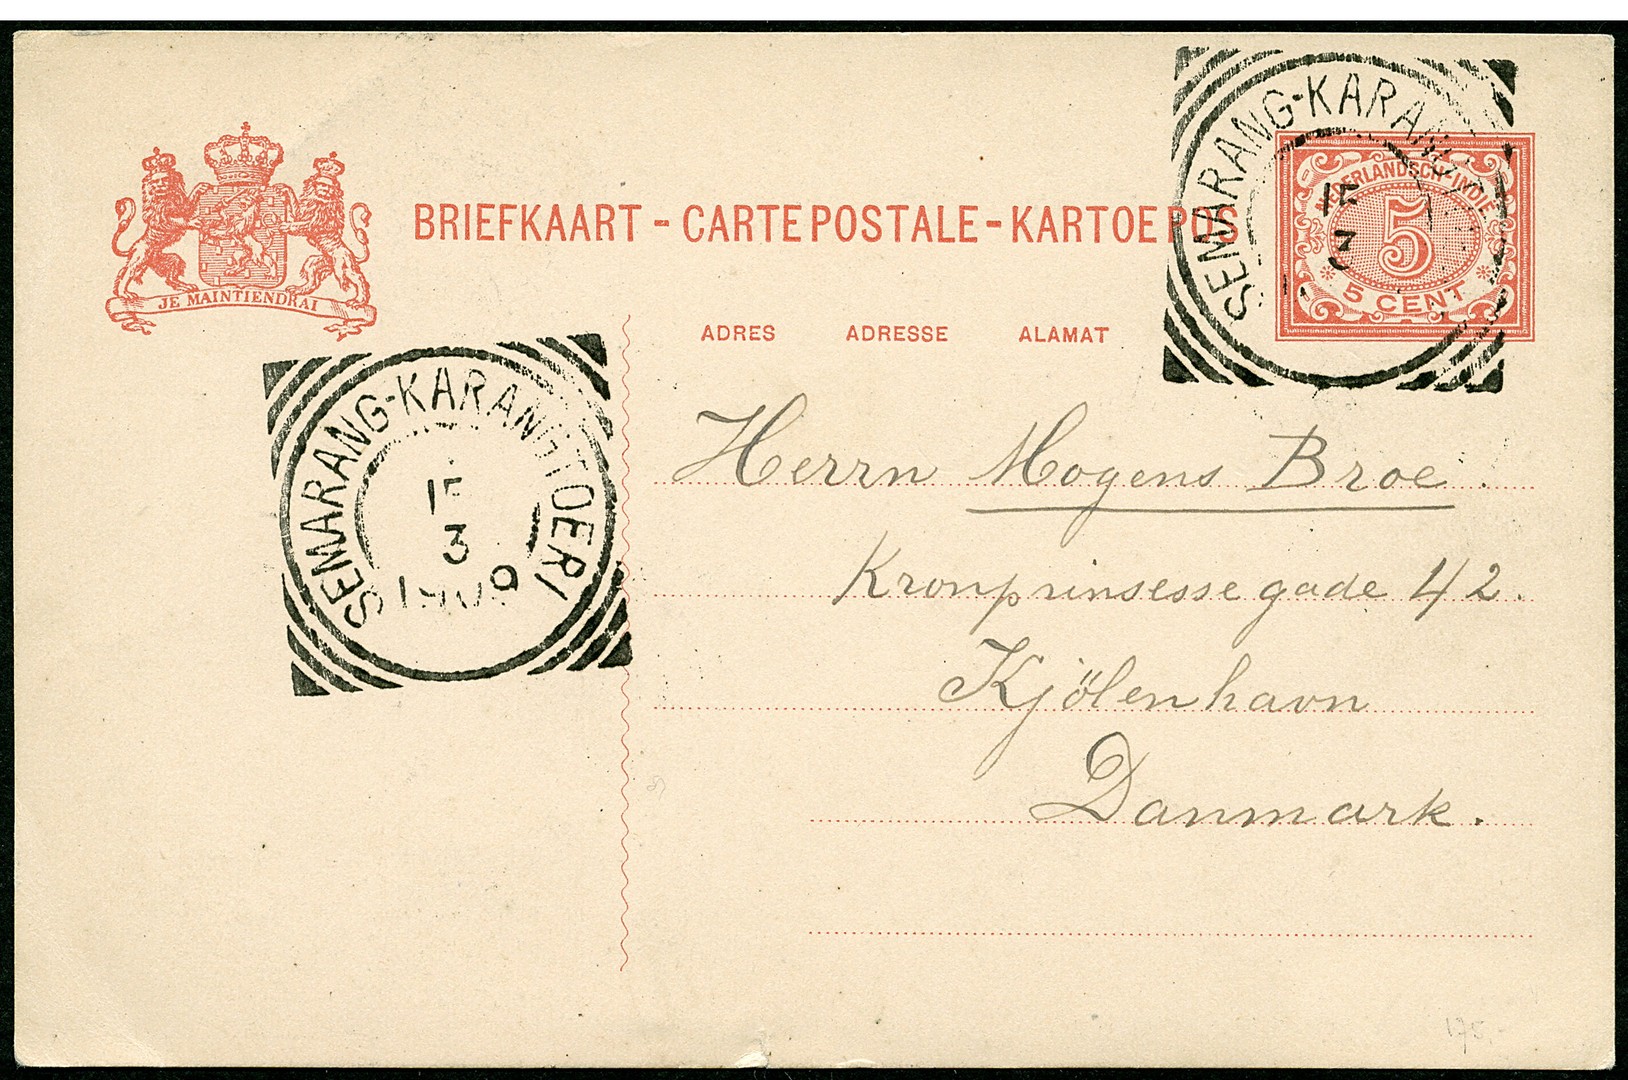 BRIEFKAART - CARTE POSTALE - KARTOE POS
JE MAINTIENDRAI
NEDERLANDSCH-INDIË
5
5 CENT
SEMARANG-KARANG
3
ADRES ADRESSE ALAMAT
SEMARANG-KARANGTOERI
3
1909
Herrn Mogens Broe.
Kronprinsessegade 42.
Kjölenhavn
Danmark.
175.